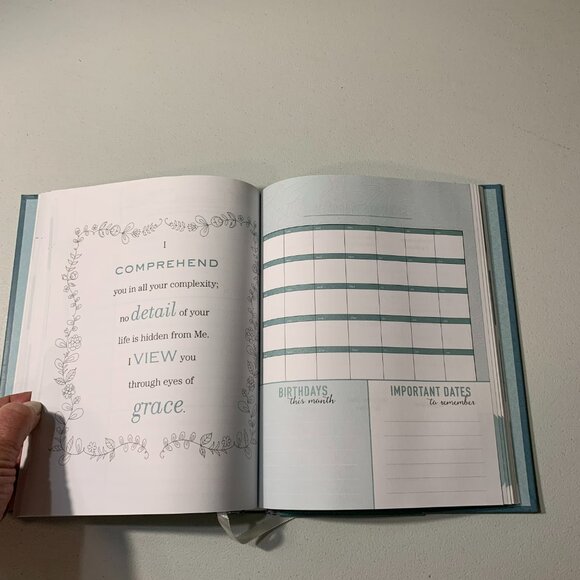 I
COMPREHEND
you in all your complexity;
no detail of your
life is hidden from Me.
I VIEW you
through eyes of
grace.
BIRTHDAYS
this month
IMPORTANT DATES
to remember